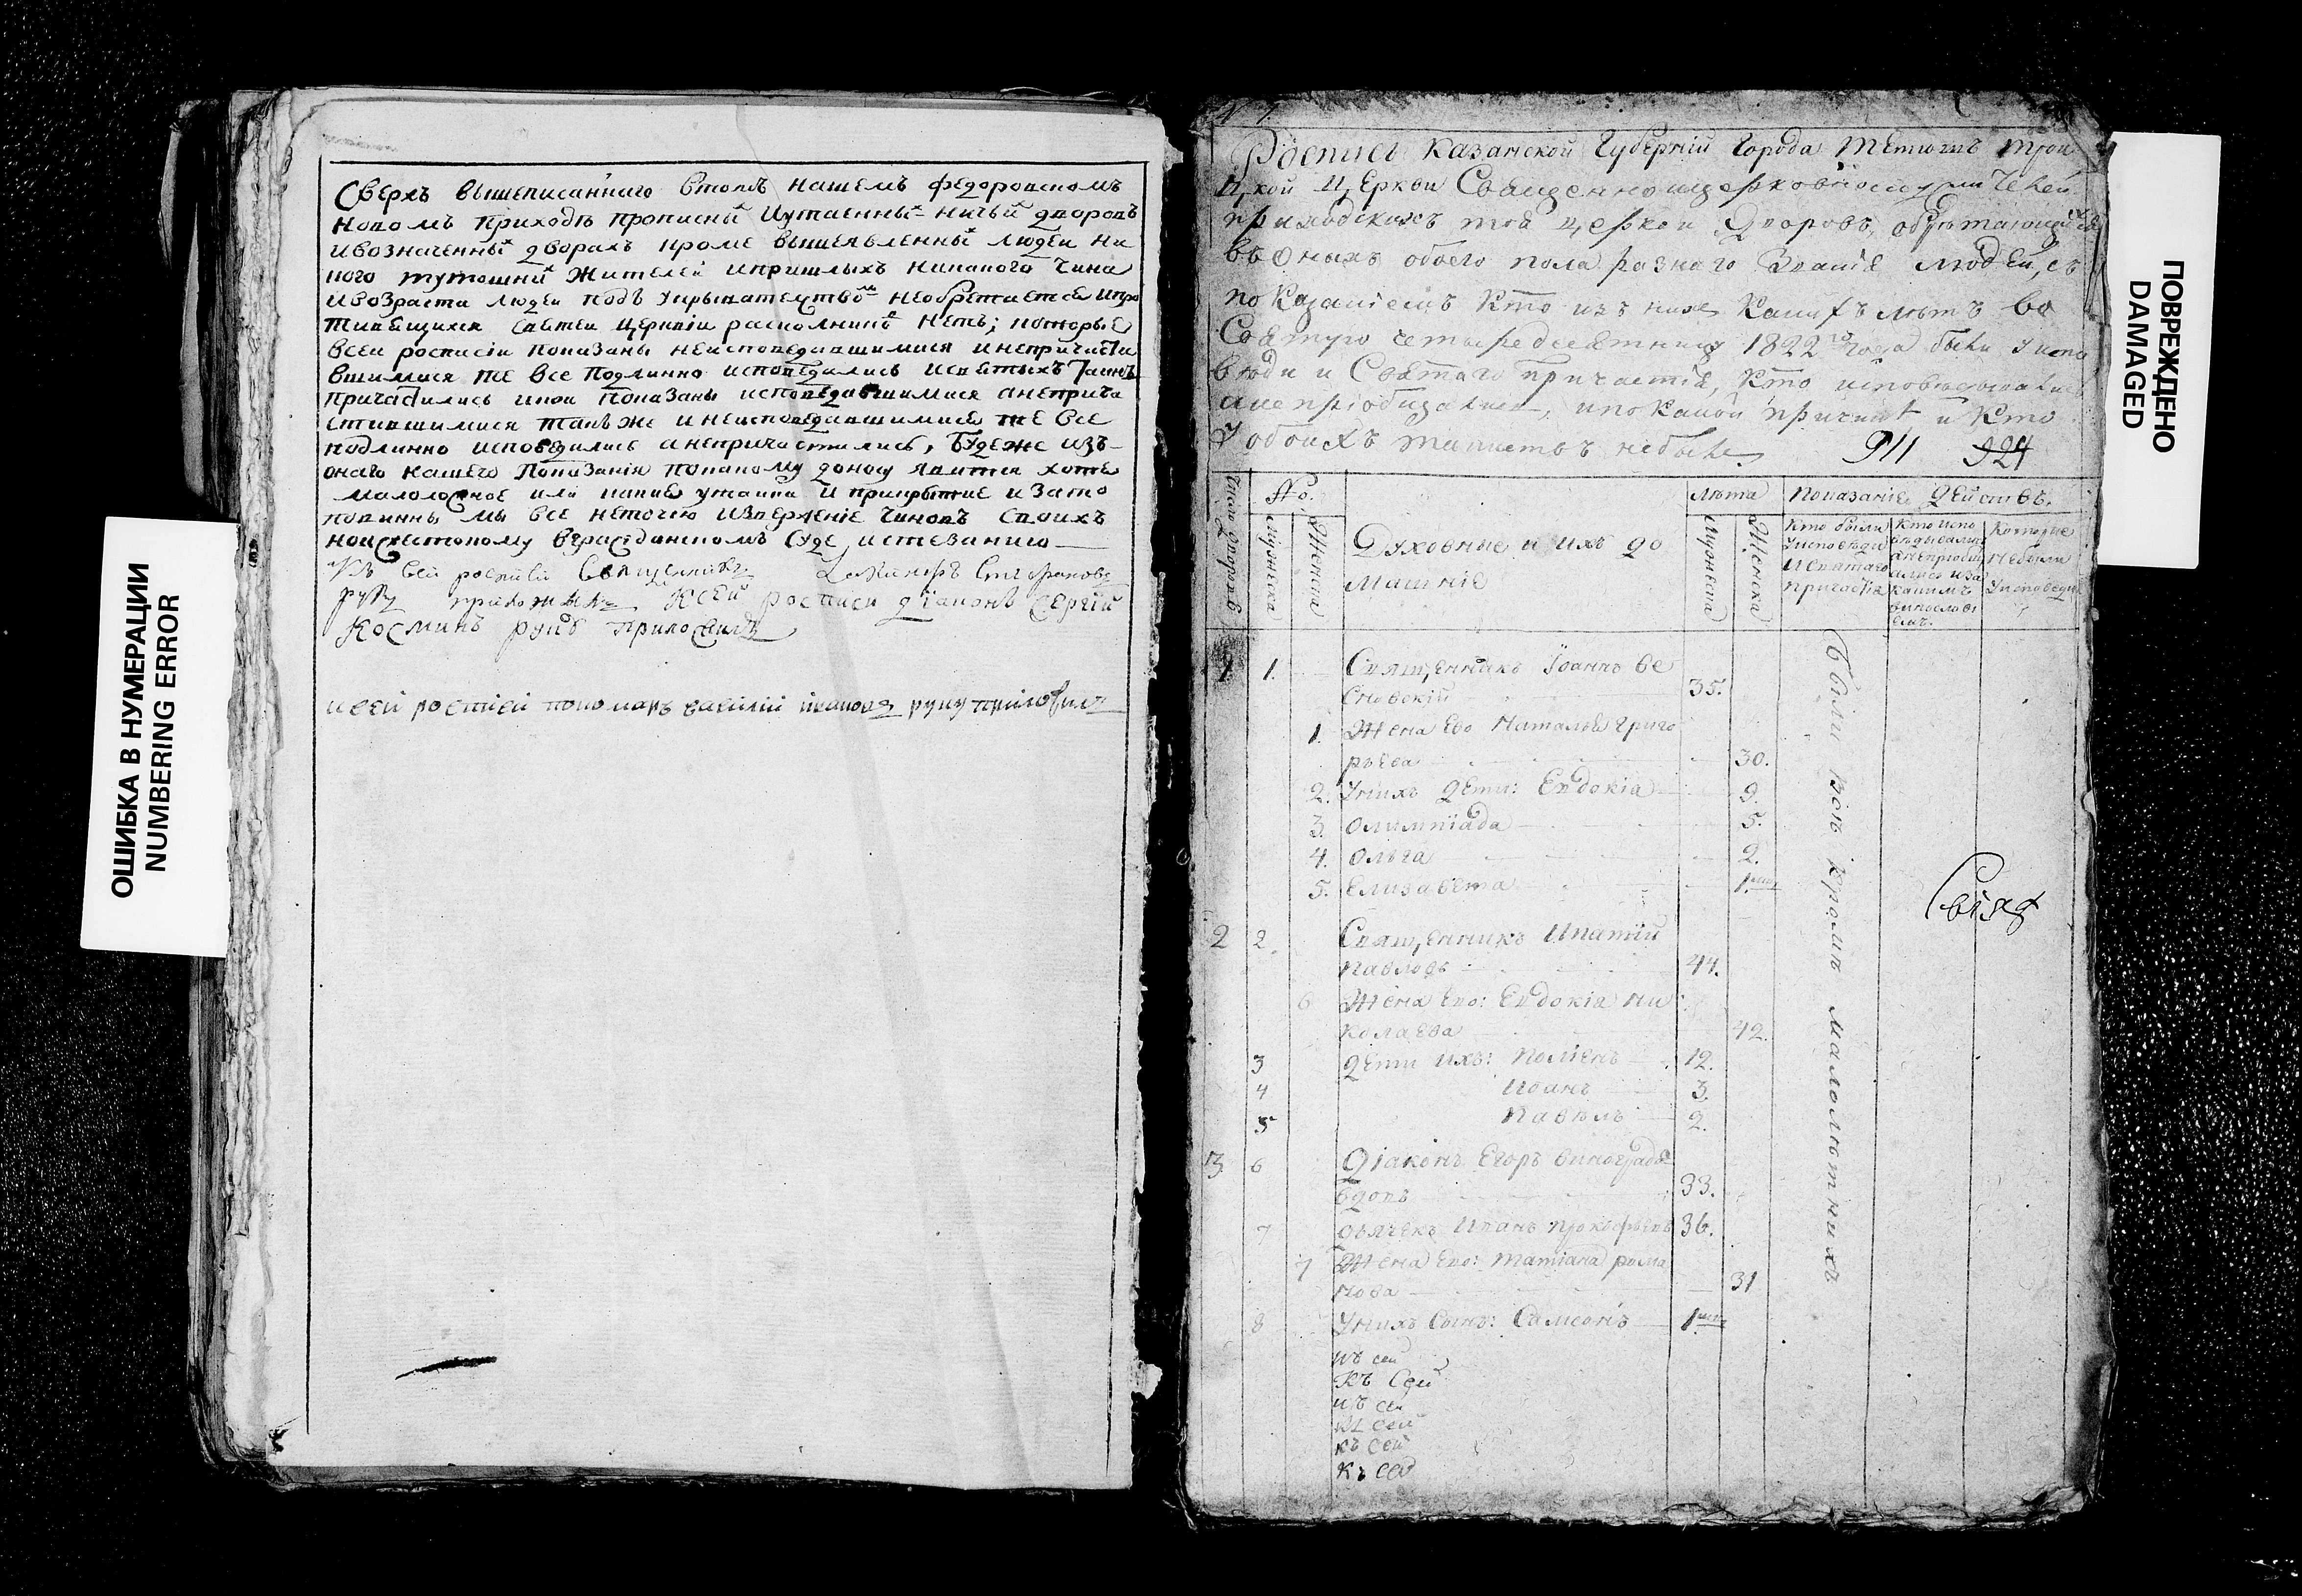 ОШИБКА В НУМЕРАЦИИ
NUMBERING ERROR
Сверхъ вышеписаннаго втомъ нашемъ федоровскомъ
новомъ приходѣ прописны̆ Иутаенны̆ ничьй дворовъ
ивозначенны̆ дворахъ кроме вышеявленны̆ людеи ни
кого тутошнй Жителеи ипришлыхъ никакого Чина
ивозраста людеи подъ укрывателством необретается ипро
тивящихся святеи церквіи раскольник нетъ; которые
всеи росписіи показаны неисповедавшимися инепричасти
вшимися те все подлинно исповедались исвятыхъ Таинъ
причастились икои показаны исповедавшимися анеприча
стившимися такъже инеисповедавшимися те все
подлинно исповедались анепричастились, Будеже изъ
онаго нашего показанія покакому доносу явится хотя
малолосное или какие утаики и прикрытие изато
повинны мы все неточію Изверженіе чиновъ своихъ
но истестокому вгражданскомъ суде истезанию
Къ сей росписи священникъ
руку приложилъ Ксей росписи діаконъ Сергій
Косминъ руку приложилъ
ксей росписи пономарь василій ивановъ руку приложилъ
Роспись Казанской Губерніи города Тетюшъ Трои
цкой Церкви Священноцерковнослужителей
приходскихъ той церкви Дворовъ, обрѣтающихся
въ оныхъ обоего пола разнаго Званія людей, съ
показаніемъ Кто изъ нихъ Какихъ лѣтъ во
Святую четыредесятницу 1822го года были уиспо
вѣди и Святаго причастія, Кто исповѣдывались
анепріобщались, ипо какой причинѣ и Кто
у обоихъ таинствъ небыли
911 924
Число дворовъ
No.
Мужеска
Женска
Духовные и ихъ до
машніе
лѣта
Мужеска
Женска
Показаніе действъ.
Кто были уисповѣди исвятаго причастія
Кто испо вѣдывались анепріобщились иза какимъ винословіемъ.
Которые небыли уисповеди
1 1. Священникъ Іоаннъ Ве
сновскій 35.
1. Жена Ево Наталья григо
рьева 30.
2. Унихъ Дети: Евдокіа 9.
3. Олимпіада 5.
4. Ольга 2.
5. Елизавета 1.
Были всѣ кромѣ малолѣтнихъ
2 2. Священникъ Ипатій
Павловъ 44.
6 Жена Ево: Евдокіа ни
колаева 42.
3 Дети ихъ: Поліенъ 12.
4 Иванъ 3.
5 Павелъ 2.
3 6 Діаконъ Егоръ виноградов
вдовъ 33.
7 Дьячекъ Иванъ прокофьевъ 36.
7 Жена Ево: Татіана рома
нова 31
8 Унихъ Сынъ: Самсонъ 1
къ сеи
Къ Сей
къ сеи
къ сеи
къ сей
Къ сей
ПОВРЕЖДЕНО
DAMAGED